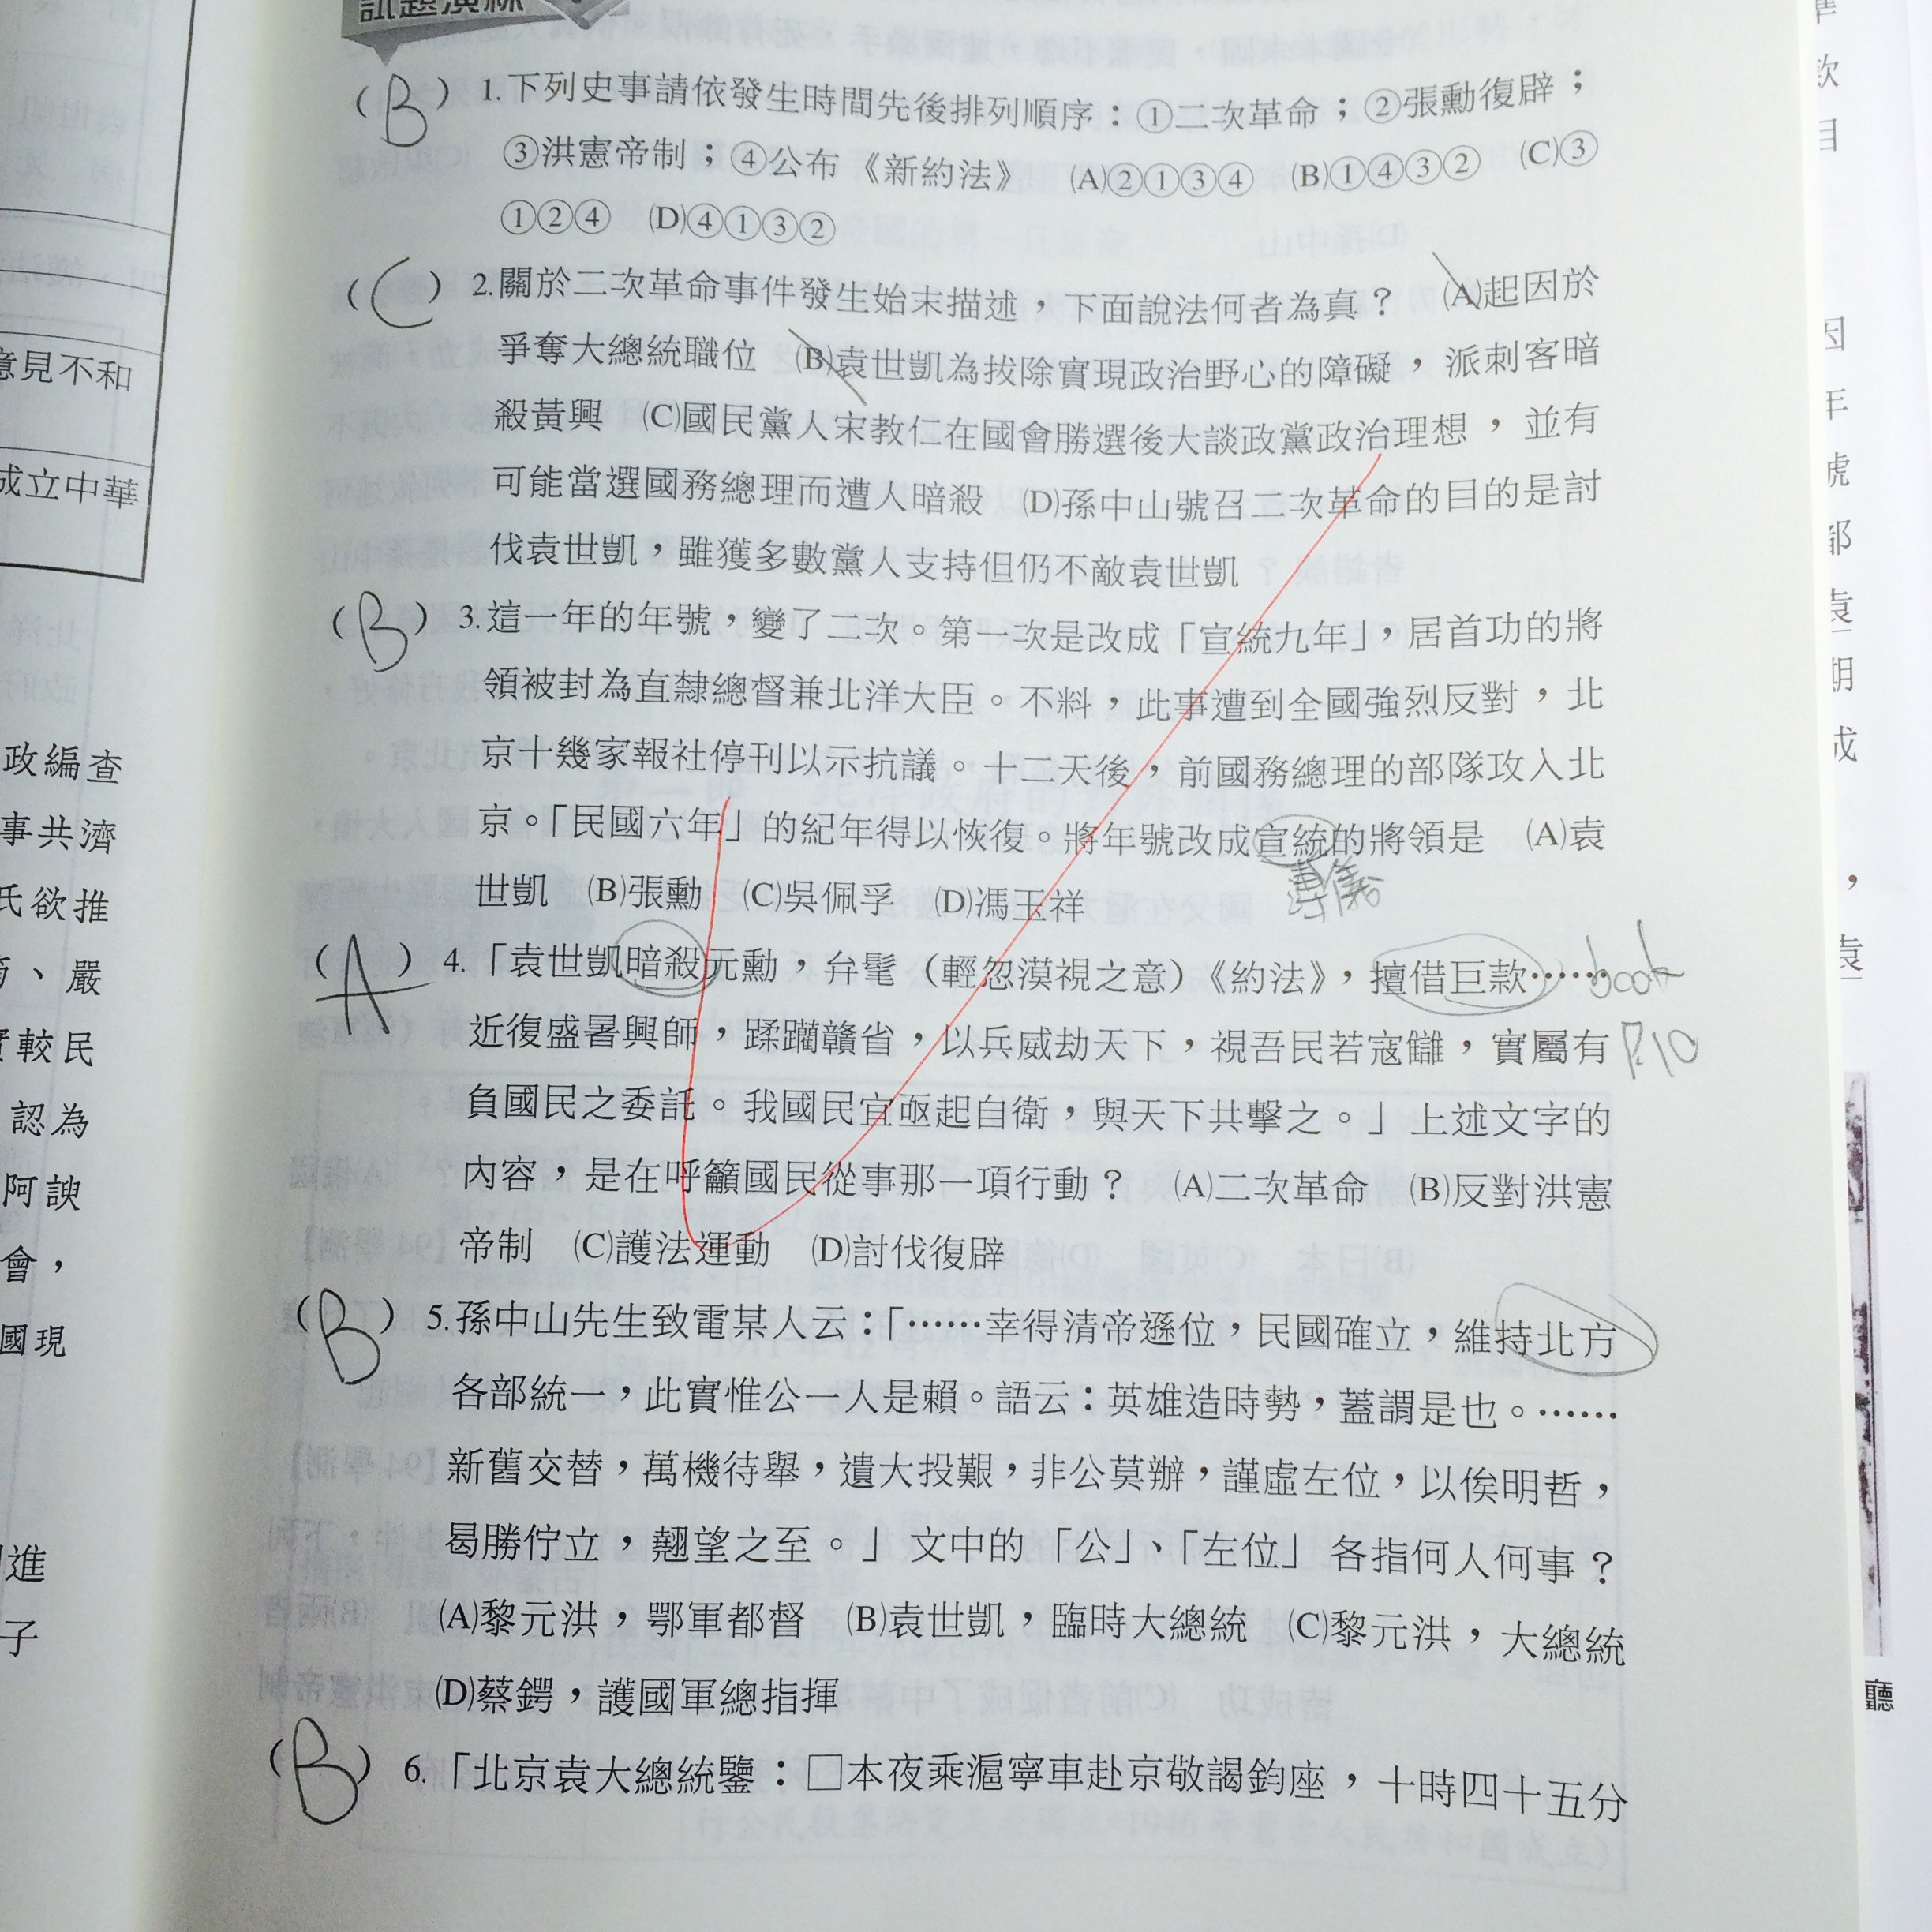 試題演練
(B) 1.下列史事請依發生時間先後排列順序：①二次革命；②張勳復辟；
③洪憲帝制；④公布《新約法》 (A)②①③④ (B)①④③② (C)③
①②④ (D)④①③②
(C) 2.關於二次革命事件發生始末描述，下面說法何者為真？ (A)起因於
爭奪大總統職位 (B)袁世凱為拔除實現政治野心的障礙，派刺客暗
殺黃興 (C)國民黨人宋教仁在國會勝選後大談政黨政治理想，並有
可能當選國務總理而遭人暗殺 (D)孫中山號召二次革命的目的是討
伐袁世凱，雖獲多數黨人支持但仍不敵袁世凱
(B) 3.這一年的年號，變了二次。第一次是改成「宣統九年」，居首功的將
領被封為直隸總督兼北洋大臣。不料，此事遭到全國強烈反對，北
京十幾家報社停刊以示抗議。十二天後，前國務總理的部隊攻入北
京。「民國六年」的紀年得以恢復。將年號改成宣統的將領是 (A)袁
世凱 (B)張勳 (C)吳佩孚 (D)馮玉祥
溥儀
(A) 4.「袁世凱暗殺元勳，弁髦（輕忽漠視之意）《約法》，擅借巨款…… book
近復盛暑興師，蹂躪贛省，以兵威劫天下，視吾民若寇讎，實屬有 P.10
負國民之委託。我國民宜亟起自衛，與天下共擊之。」上述文字的
內容，是在呼籲國民從事那一項行動？ (A)二次革命 (B)反對洪憲
帝制 (C)護法運動 (D)討伐復辟
(B) 5.孫中山先生致電某人云：「……幸得清帝遜位，民國確立，維持北方
各部統一，此實惟公一人是賴。語云：英雄造時勢，蓋謂是也。……
新舊交替，萬機待舉，遺大投艱，非公莫辦，謹虛左位，以俟明哲，
曷勝佇立，翹望之至。」文中的「公」、「左位」各指何人何事？
(A)黎元洪，鄂軍都督 (B)袁世凱，臨時大總統 (C)黎元洪，大總統
(D)蔡鍔，護國軍總指揮
(B) 6.「北京袁大總統鑒：□本夜乘滬寧車赴京敬謁鈞座，十時四十五分
意見不和
成立中華
政編查
事共濟
氏欲推
、嚴
較民
認為
阿諛
會，
國現
進
子
款
年
號
袁
期
成
，
袁
廳